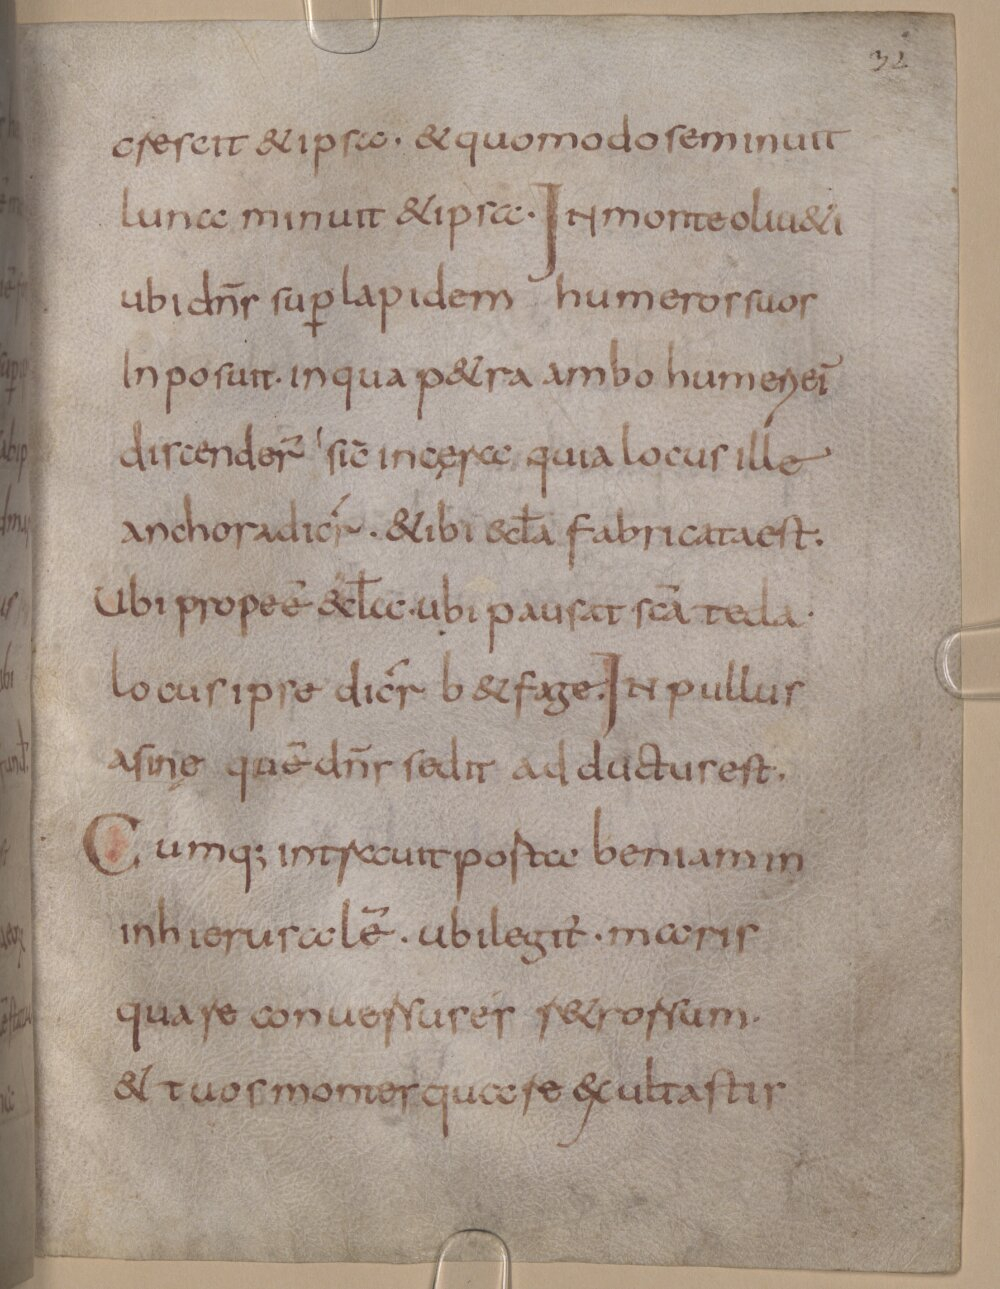 32
crescit & ipsa · & quomodo se minuit
luna minuit & ipsa · IN monte oliu&i
ubi dn̄s sup̱ lapidem humeros suos
Inposuit · in qua p&ra ambo humeri ei
discender̄ sic̄ in cera quia locus ille
anchora dicr̄ · & ibi ecl̄a fabricata est ·
Ubi prope ē ecl̄a · ubi pausat sc̄a tecla ·
locus ipse dicr̄ b&fage · IN pullus
asinę quē dn̄s sedit adductus est ·
Cumq; intrauit postea beniamin
in hierusalē · ubi legit̄ · maris
quare conuersus es r&rorsum ·
& tuos montes quare excultastis